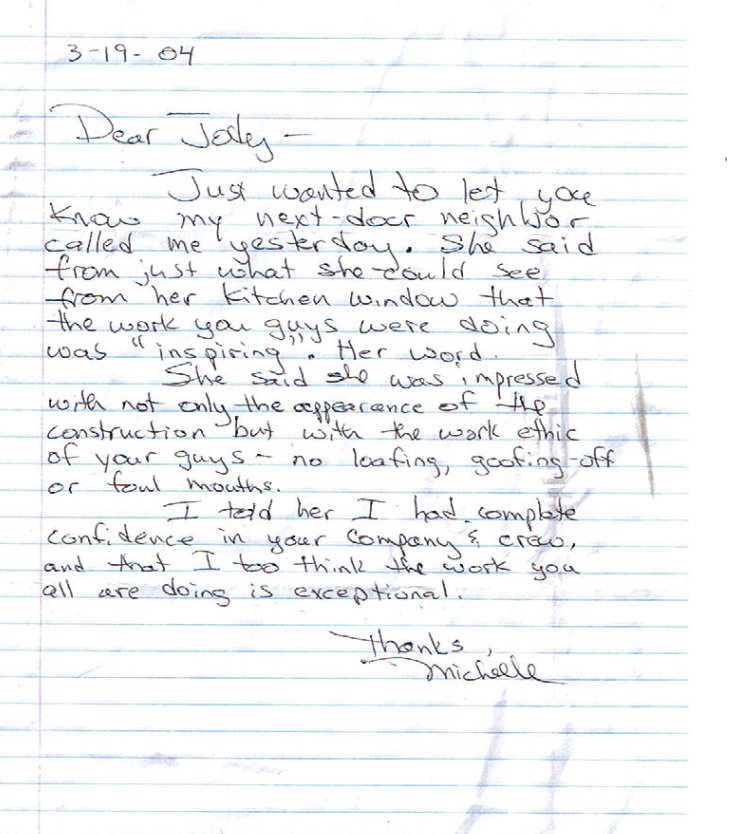 3-19-04
Dear Jodey -
Just wanted to let you
know my next-door neighbor
called me yesterday. She said
from just what she could see
from her kitchen window that
the work you guys were doing
was "inspiring". Her word.
She said she was impressed
with not only the appearance of the
construction but with the work ethic
of your guys - no loafing, goofing-off
or foul mouths.
I told her I had complete
confidence in your company & crew,
and that I too think the work you
all are doing is exceptional.
Thanks,
Michelle